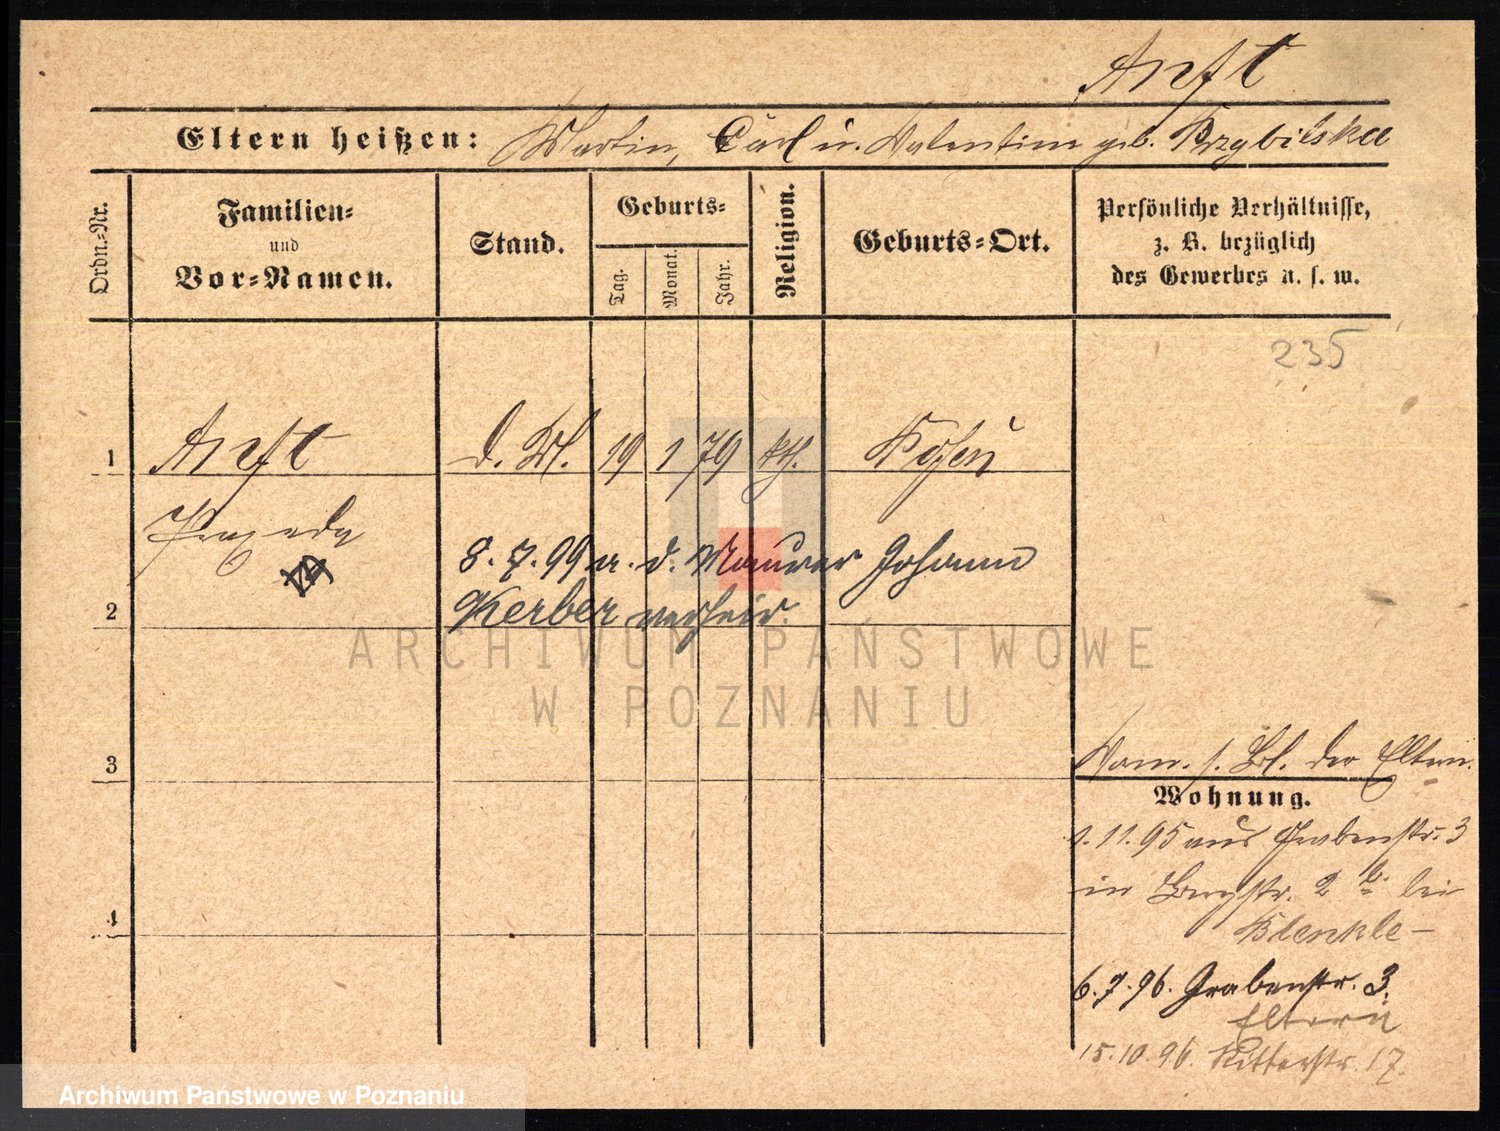 Anft
Eltern heißen: Martin, Carl u. Valentine geb. Przybilska
Ordn.-Nr.
Familien-
und
Vor-Namen.
Stand.
Geburts-
Tag.
Monat.
Jahr.
Religion.
Geburts-Ort.
Persönliche Verhältnisse,
z. B. bezüglich
des Gewerbes u. s. w.
235
1 Anft d. M. 19 1 79 kth. Posen
Praxeda
8. 7. 99 a. d. Maurer Johann
2 Kerber verheir.
ARCHIWUM PAŃSTWOWE
W POZNANIU
3 s. Bl. der Eltern.
Wohnung.
1. 11. 95 aus Grabenstr. 3
in Bergstr. 2 b. bei
4
6. 7. 96. Grabenstr. 3.
Eltern
15. 10. 96. Ritterstr. 17.
Archiwum Państwowe w Poznaniu